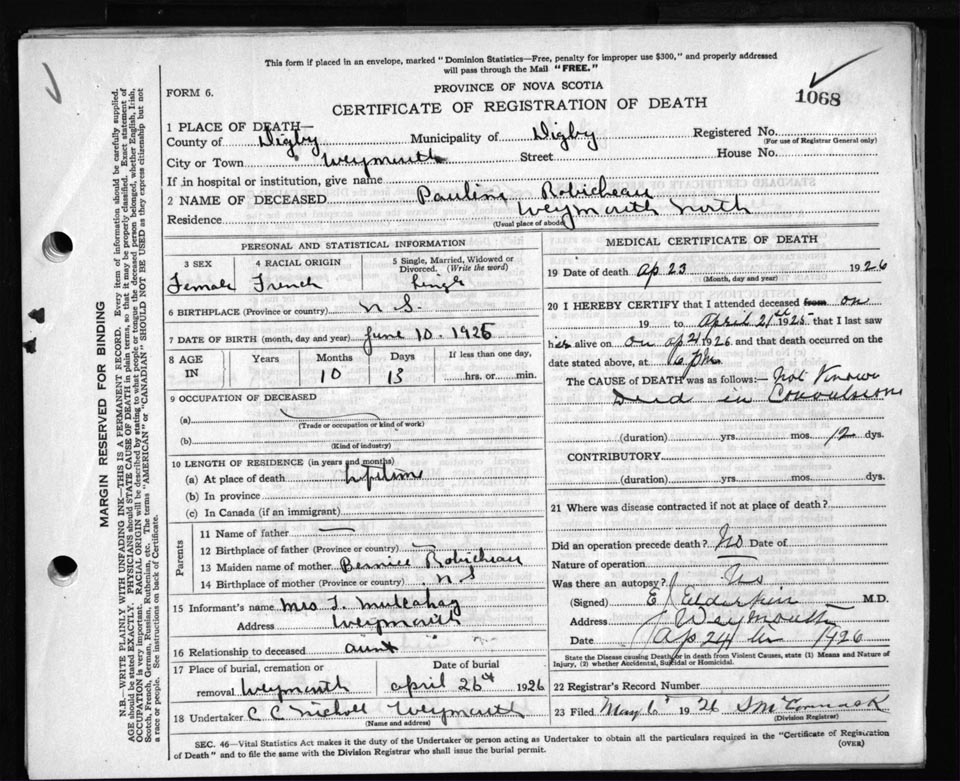 This form if placed in an envelope, marked "Dominion Statistics—Free, penalty for improper use $300," and properly addressed
will pass through the Mail "FREE."
FORM 6.
PROVINCE OF NOVA SCOTIA
CERTIFICATE OF REGISTRATION OF DEATH
1068
1 PLACE OF DEATH—
County of Digby Municipality of Digby Registered No.
(For use of Registrar General only)
City or Town Weymouth Street House No.
If in hospital or institution, give name
2 NAME OF DECEASED Pauline Robicheau
Residence Weymouth North
(Usual place of abode)
PERSONAL AND STATISTICAL INFORMATION
3 SEX 4 RACIAL ORIGIN 5 Single, Married, Widowed or Divorced. (Write the word)
Female French Single
6 BIRTHPLACE (Province or country) N S.
7 DATE OF BIRTH (month, day and year) June 10. 1925
8 AGE IN Years Months Days If less than one day,
10 13 hrs. or min.
9 OCCUPATION OF DECEASED
(a)
(Trade or occupation or kind of work)
(b)
(Kind of industry)
10 LENGTH OF RESIDENCE (in years and months)
(a) At place of death lifetime
(b) In province
(c) In Canada (if an immigrant)
Parents
11 Name of father —
12 Birthplace of father (Province or country) —
13 Maiden name of mother Bernice Robicheau
14 Birthplace of mother (Province or country) N S
15 Informant's name Mrs
Address Weymouth
16 Relationship to deceased aunt
17 Place of burial, cremation or Date of burial
removal Weymouth April 26th 1926
18 Undertaker C C Nicholl Weymouth
(Name and address)
MEDICAL CERTIFICATE OF DEATH
19 Date of death Ap 23 1926
(Month, day and year)
20 I HEREBY CERTIFY that I attended deceased from on
19 to April 21st 1925 that I last saw
her alive on on ap 21 1926 and that death occurred on the
date stated above, at 6 pm
The CAUSE of DEATH was as follows:— Not Known
Died in Convulsions
(duration) yrs. mos. 12 dys.
CONTRIBUTORY
(duration) yrs. mos. dys.
21 Where was disease contracted if not at place of death?
Did an operation precede death? No Date of
Nature of operation
Was there an autopsy?
(Signed) E J Elderkin M.D.
Address Weymouth
Date Ap 24 1926
State the Disease causing Death, or in death from Violent Causes, state (1) Means and Nature of
Injury, (2) whether Accidental, Suicidal or Homicidal.
22 Registrar's Record Number
23 Filed May 6 1926 McCormack
(Division Registrar)
SEC. 46—Vital Statistics Act makes it the duty of the Undertaker or person acting as Undertaker to obtain all the particulars required in the "Certificate of Registration
of Death" and to file the same with the Division Registrar who shall issue the burial permit.
(OVER)
MARGIN RESERVED FOR BINDING
N.B.—WRITE PLAINLY WITH UNFADING INK—THIS IS A PERMANENT RECORD. Every item of information should be carefully supplied.
AGE should be stated EXACTLY. PHYSICIANS should STATE CAUSE OF DEATH in plain terms, so that it may be properly classified. Exact statement of
OCCUPATION is very important. RACIAL ORIGIN will be described by stating to what people or tongue the deceased person belonged, whether English, Irish,
Scotch, French, German, Russian, Ruthenian, etc. The terms "AMERICAN" or "CANADIAN" SHOULD NOT BE USED as they express citizenship but not
a race or people. See instructions on back of Certificate.